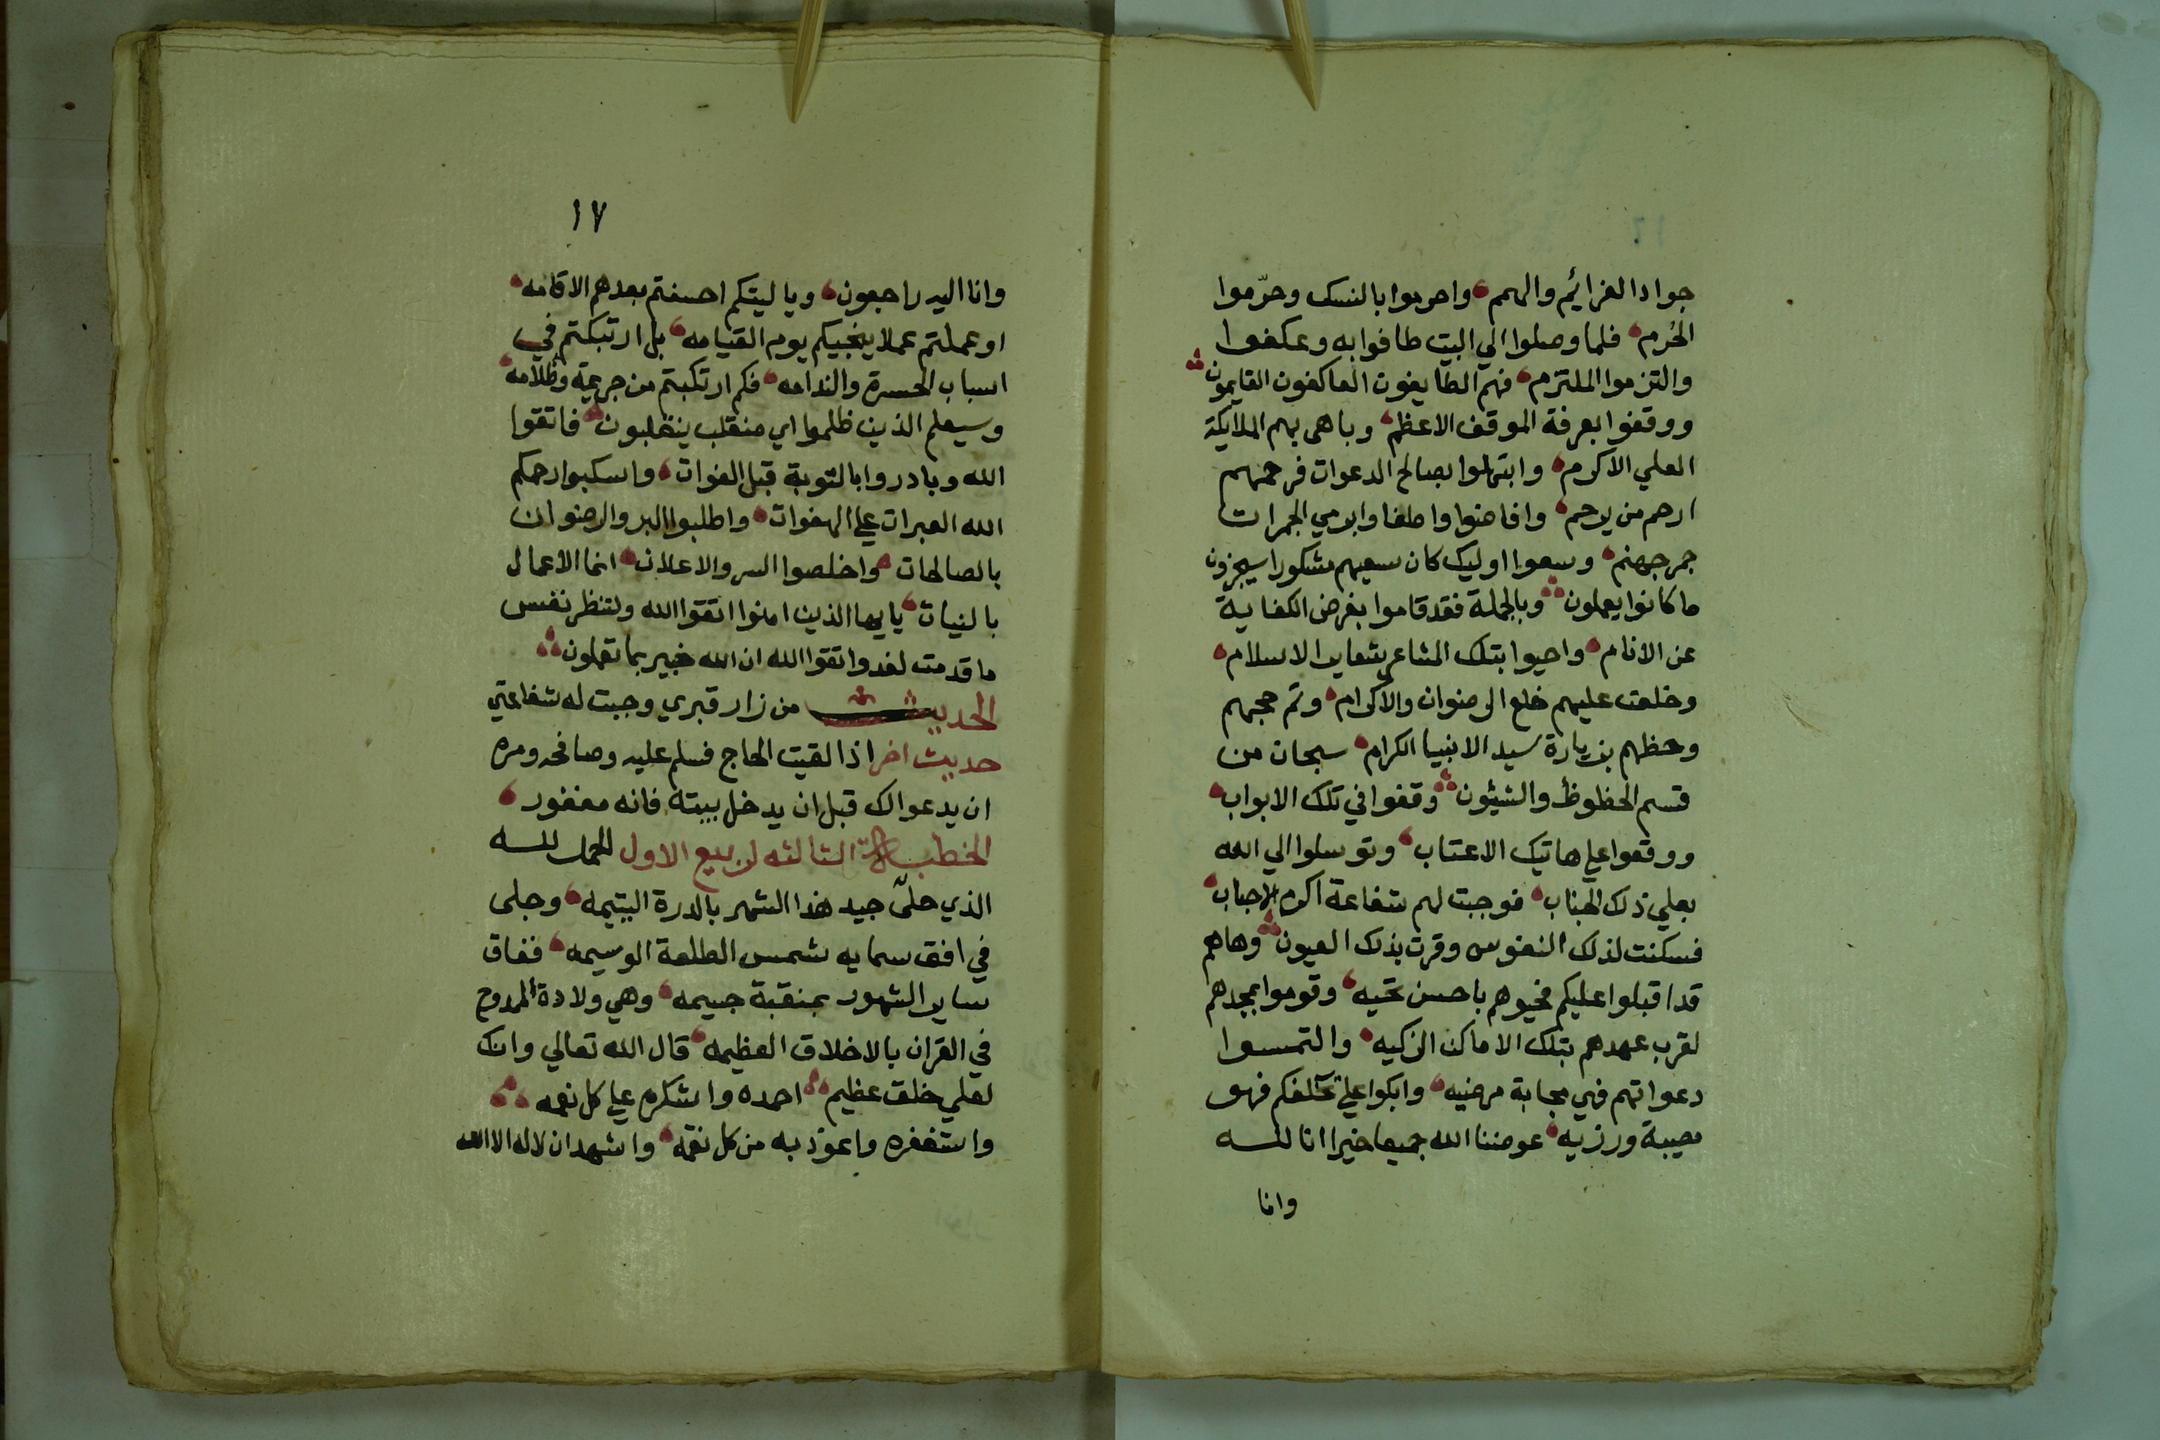 جواد العزائم والهمم واحرموا بالنسك وحرّموا
الحُرم فلما وصلوا الي البيت طافوا به وعكفوا
والتزموا الملتزم فهم الطايفون العاكفون القايمون
ووقفوا بعرفة الموقف الاعظم وباهى بهم الملايكة
العلي الاكرم وابتهلوا بصالح الدعوات فرحمهم
ارحم من يرحم وافاضوا واطفاوا برمي الجمرات
جمر جهنم وسعوا اوليك كان سعيهم مشكورا سيجزون
ما كانوا يعملون وبالجملة فقد قاموا بفرض الكفاية
عن الانام واحيوا بتلك المشاعر شعاير الاسلام
وخلعت عليهم خلع الرضوان والاكرام وتم حجهم
وحظهم بزيارة سيد الانبيا الكرام سبحان من
قسم الحظوظ والشيئون وقفوا في تلك الابواب
ووقعوا علي هاتيك الاعتاب وتوسلوا الي الله
بعلي ذلك الجناب فوجبت لهم شفاعة اكرم الاحباب
فسكنت لذلك النفوس وقرت بذلك العيون وهاهم
قد اقبلوا عليكم فحيوهم باحسن تحيه وقوموا بمجدهم
لقرب عهدهم بتلك الاماكن الزكيه والتمسوا
دعواتهم فهي مجابة مرضيه وابكوا علي تخلفكم فهو
مصيبة ورزيه عوضنا الله جميعا خيرا انا لله
وانا
١٧
وانا اليه راجعون ويا ليتكم احسنتم بعدهم الاقامه
او عملتم عملا ينجيكم يوم القيامه بل ارتبكتم في
اسباب الحسرة والندامه فكم ارتكبتم من جريمة وظلامه
وسيعلم الذين ظلموا اي منقلب ينقلبون فاتقوا
الله وبادروا بالتوبة قبل الفوات واسكبوا رحمكم
الله العبرات علي الهفوات واطلبوا البر والرضوان
بالصالحات واخلصوا السر والاعلان انما الاعمال
بالنيات يايها الذين امنوا اتقوا الله ولتنظر نفس
ما قدمت لغد واتقوا الله ان الله خبير بما تعملون
الحديث من زار قبري وجبت له شفاعتي
حديث اخر اذا لقيت الحاج فسلم عليه وصافحه ومره
ان يدعوا لك قبل ان يدخل بيته فانه مغفور
الخطبة الثالثه لربيع الاول الحمد لله
الذي حلّى جيد هذا الشهر بالدرة اليتيمه وجلى
في افق سمايه شمس الطلعة الوسيمه ففاق
ساير الشهور بمنقبة جسيمه وهي ولادة الممدوح
في القران بالاخلاق العظيمه قال الله تعالي وانك
لعلي خلق عظيم احمده واشكره علي كل نعمه
واستغفره واعوذ به من كل نقمه واشهد ان لا اله الا الله